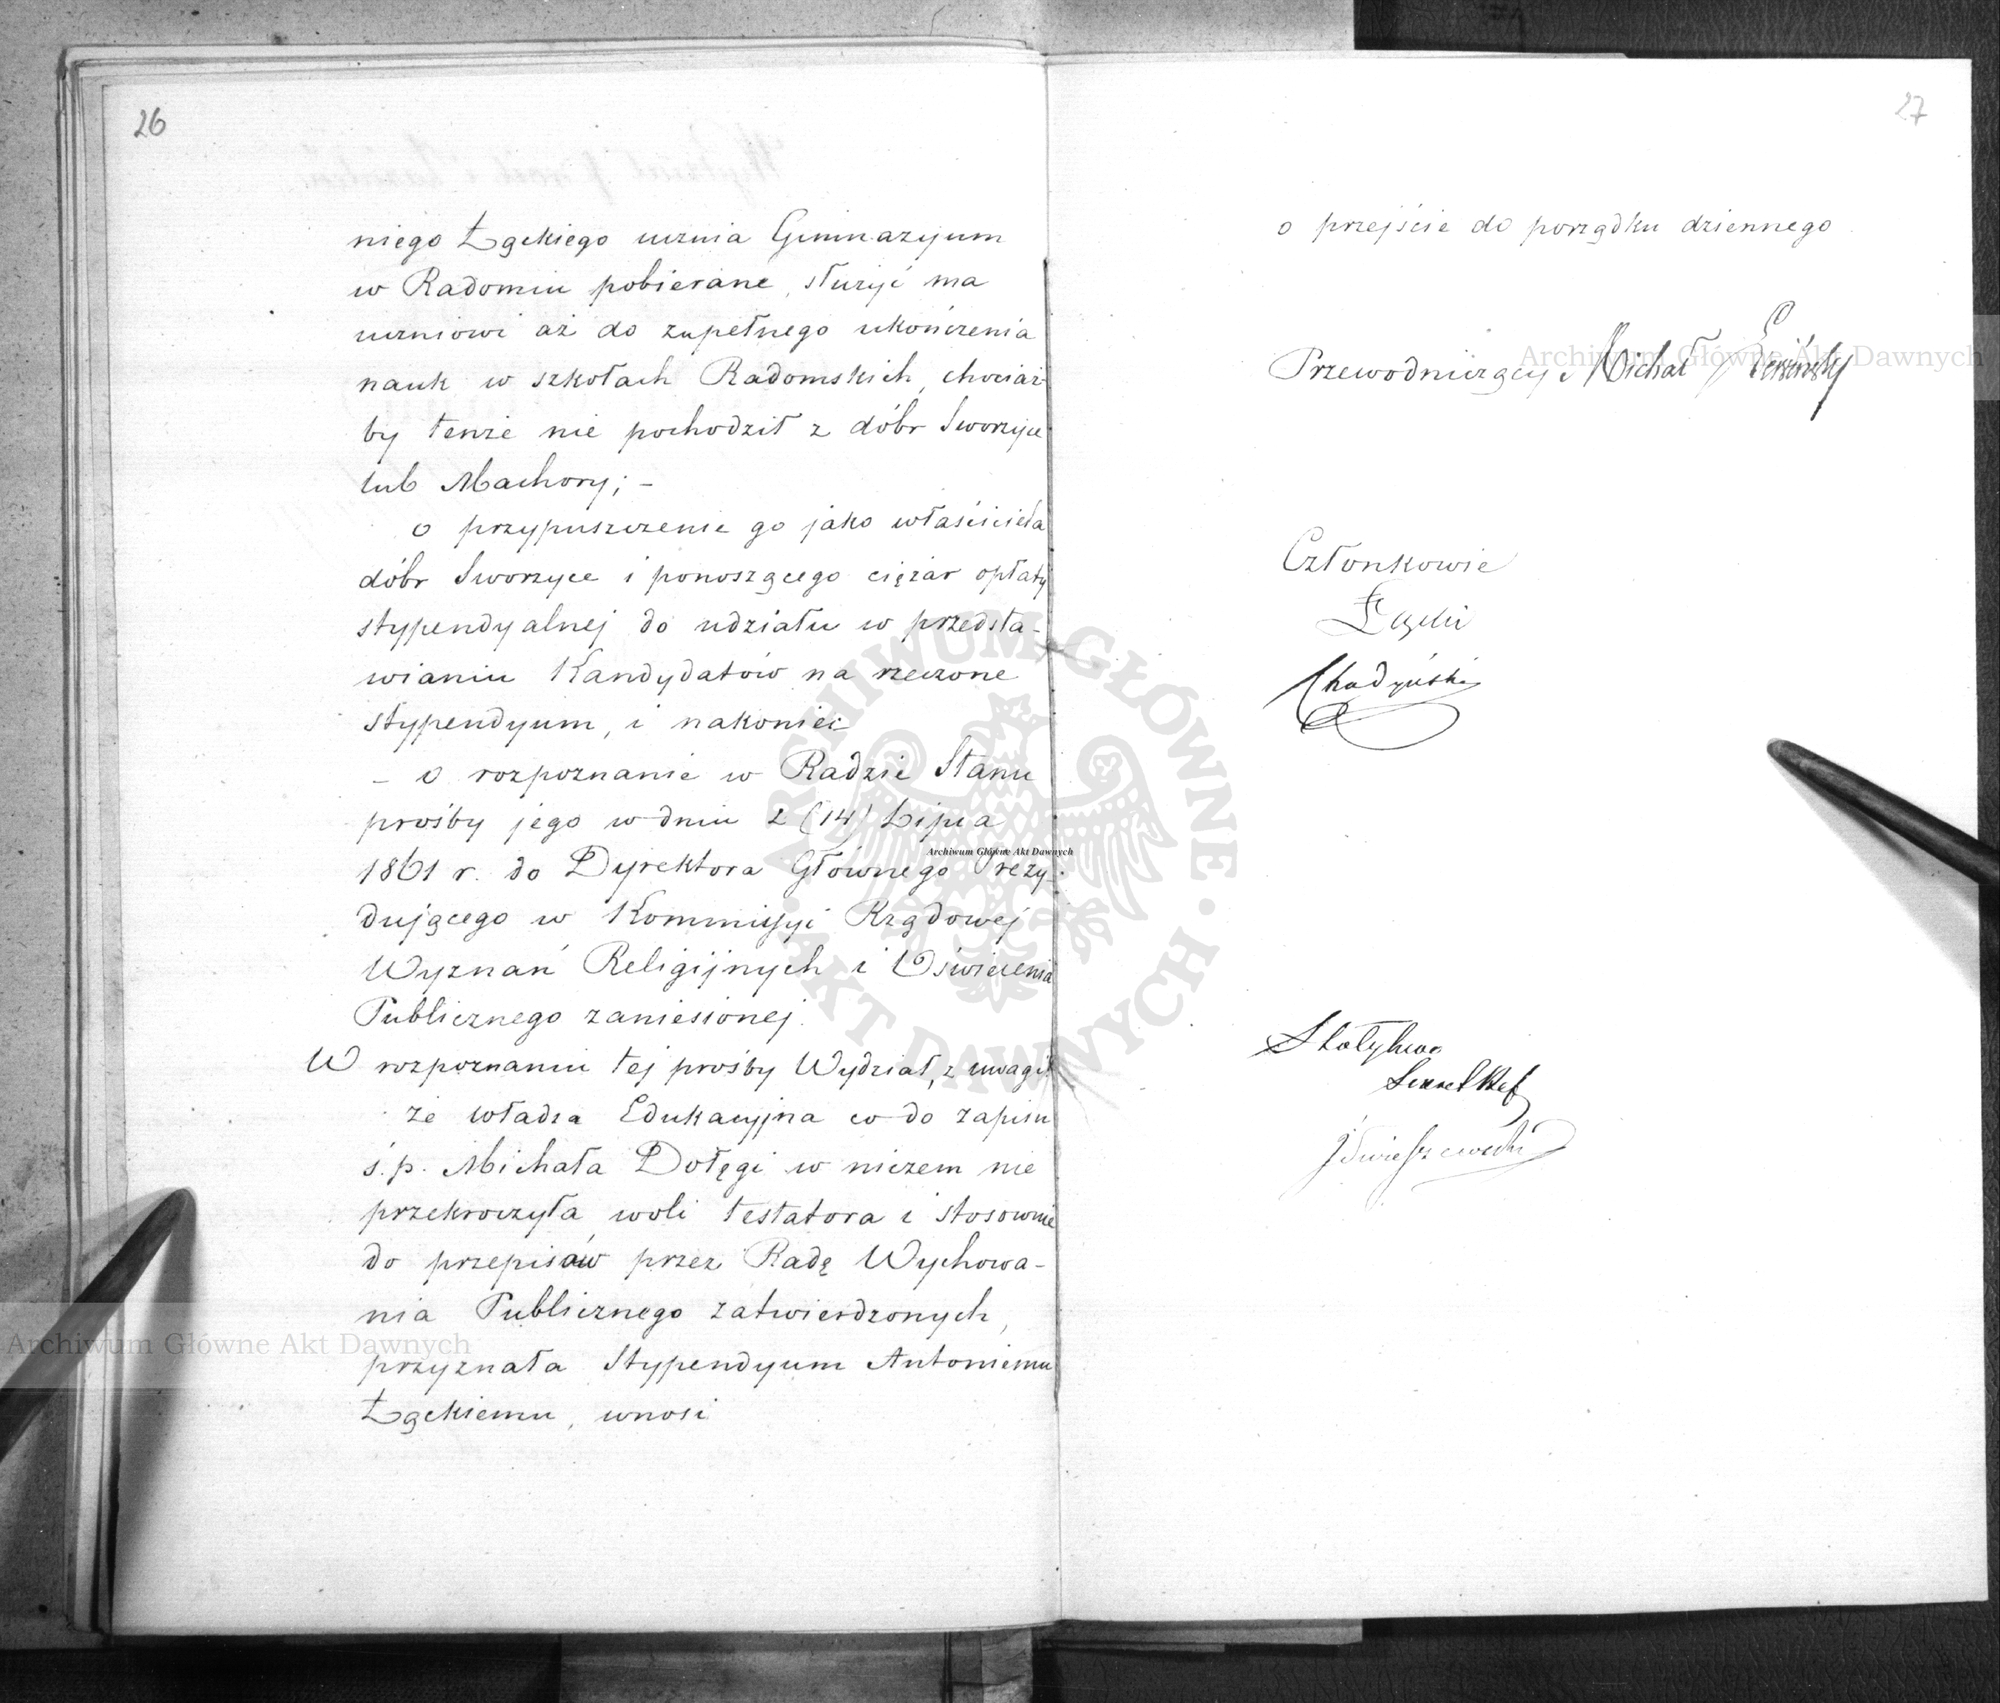 26
niego Łąckiego ucznia Gimnazyum
w Radomiu pobierane, służyć ma
uczniowi aż do zupełnego ukończenia
nauk w szkołach Radomskich, chociaż
by tenże nie pochodził z dóbr Sworzyce
lub Machory; –
o przypuszczenie go jako właściciela
dóbr Sworzyce i ponoszącego ciężar opłaty
stypendyalnej do udziału w przedsta-
wianiu Kandydatów na rzeczone
stypendyum, i nakoniec
– o rozpoznanie w Radzie Stanu
prośby jego w dniu 2 (14) Lipca
1861 r. do Dyrektora Głównego Prezy-
dującego w Kommissyi Rządowej
Wyznań Religijnych i Oświecenia
Publicznego zaniesionej.
W rozpoznaniu tej prośby Wydział, z uwagi
że władza Edukacyjna co do zapisu
ś.p. Michała Dołęgi w niczem nie
przekroczyła woli testatora i stosownie
do przepisów przez Radę Wychowa-
nia Publicznego zatwierdzonych,
przyznała Stypendyum Antoniemu
Łąckiemu, wnosi
27
o przejście do porządku dziennego
Przewodniczący Michał
Członkowie
Łącki
Chodyński
ARCHIWUM GŁÓWNE AKT DAWNYCH
Archiwum Główne Akt Dawnych
Archiwum Główne Akt Dawnych
Archiwum Główne Akt Dawnych